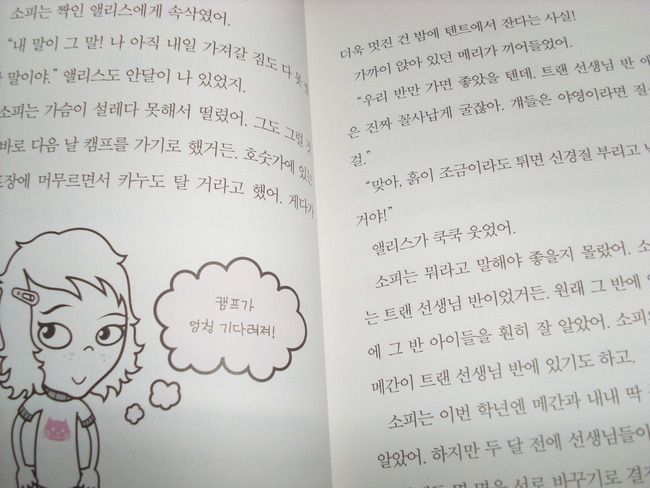 소피는 짝인 앨리스에게 속삭였어.
"내 말이 그 말! 나 아직 내일 가져갈 짐도 다 못
말이야." 앨리스도 안달이 나 있었지.
소피는 가슴이 설레다 못해서 떨렸어. 그도 그럴
바로 다음 날 캠프를 가기로 했거든. 호숫가에 있는
머무르면서 카누도 탈 거라고 했어. 게다가
캠프가
엄청 기다려져!
더욱 멋진 건 밤에 텐트에서 잔다는 사실!
가까이 앉아 있던 메리가 끼어들었어.
"우리 반만 가면 좋았을 텐데. 트랜 선생님 반
은 진짜 꼴사납게 굴잖아. 걔들은 야영이라면
걸."
"맞아, 흙이 조금이라도 튀면 신경질 부리고
거야!"
앨리스가 쿡쿡 웃었어.
소피는 뭐라고 말해야 좋을지 몰랐어.
는 트랜 선생님 반이었거든. 원래 그 반에
에 그 반 아이들을 훤히 잘 알았어.
메간이 트랜 선생님 반에 있기도 하고.
소피는 이번 학년엔 메간과 내내 딱
알았어. 하지만 두 달 전에 선생님들이
몇 명을 서로 바꾸기로